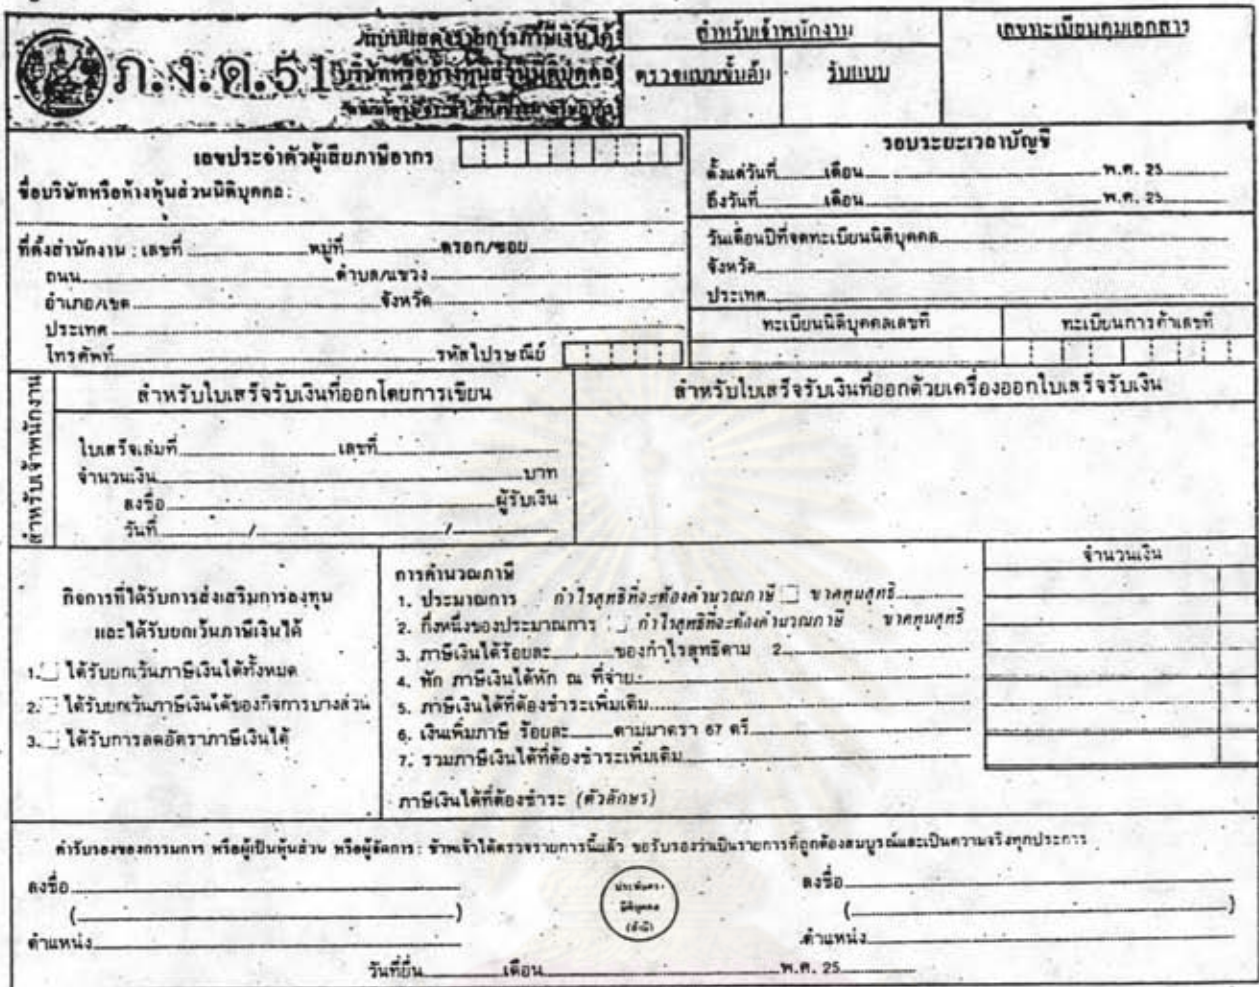 ภ.ง.ด.51
แบบแสดงรายการภาษีเงินได้
บริษัทหรือห้างหุ้นส่วนนิติบุคคล
สำหรับเจ้าพนักงาน
ตรวจแบบขั้นต้น
รับแบบ
เลขทะเบียนคุมเอกสาร
เลขประจำตัวผู้เสียภาษีอากร
ชื่อบริษัทหรือห้างหุ้นส่วนนิติบุคคล:
ที่ตั้งสำนักงาน : เลขที่ หมู่ที่ ตรอก/ซอย
ถนน ตำบล/แขวง
อำเภอ/เขต จังหวัด
ประเทศ
โทรศัพท์ รหัสไปรษณีย์
รอบระยะเวลาบัญชี
ตั้งแต่วันที่ เดือน พ.ศ. 25
ถึงวันที่ เดือน พ.ศ. 25
วันเดือนปีที่จดทะเบียนนิติบุคคล
จังหวัด
ประเทศ
ทะเบียนนิติบุคคลเลขที่
ทะเบียนการค้าเลขที่
สำหรับเจ้าพนักงาน
สำหรับใบเสร็จรับเงินที่ออกโดยการเขียน
ใบเสร็จเล่มที่ เลขที่
จำนวนเงิน บาท
ลงชื่อ ผู้รับเงิน
วันที่ / /
สำหรับใบเสร็จรับเงินที่ออกด้วยเครื่องออกใบเสร็จรับเงิน
กิจการที่ได้รับการส่งเสริมการลงทุน
และได้รับยกเว้นภาษีเงินได้
1. ได้รับยกเว้นภาษีเงินได้ทั้งหมด
2. ได้รับยกเว้นภาษีเงินได้ของกิจการบางส่วน
3. ได้รับการลดอัตราภาษีเงินได้
การคำนวณภาษี
จำนวนเงิน
1. ประมาณการ กำไรสุทธิที่จะต้องคำนวณภาษี ขาดทุนสุทธิ
2. กึ่งหนึ่งของประมาณการ กำไรสุทธิที่จะต้องคำนวณภาษี ขาดทุนสุทธิ
3. ภาษีเงินได้ร้อยละ ของกำไรสุทธิตาม 2
4. หัก ภาษีเงินได้หัก ณ ที่จ่าย
5. ภาษีเงินได้ที่ต้องชำระเพิ่มเติม
6. เงินเพิ่มภาษี ร้อยละ ตามมาตรา 67 ตรี
7. รวมภาษีเงินได้ที่ต้องชำระเพิ่มเติม
ภาษีเงินได้ที่ต้องชำระ (ตัวอักษร)
คำรับรองของกรรมการ หรือผู้เป็นหุ้นส่วน หรือผู้จัดการ: ข้าพเจ้าได้ตรวจรายการนี้แล้ว ขอรับรองว่าเป็นรายการที่ถูกต้องสมบูรณ์และเป็นความจริงทุกประการ
ลงชื่อ
( )
ตำแหน่ง
ประทับตรา
นิติบุคคล
(ถ้ามี)
ลงชื่อ
( )
ตำแหน่ง
วันที่ยื่น เดือน พ.ศ. 25